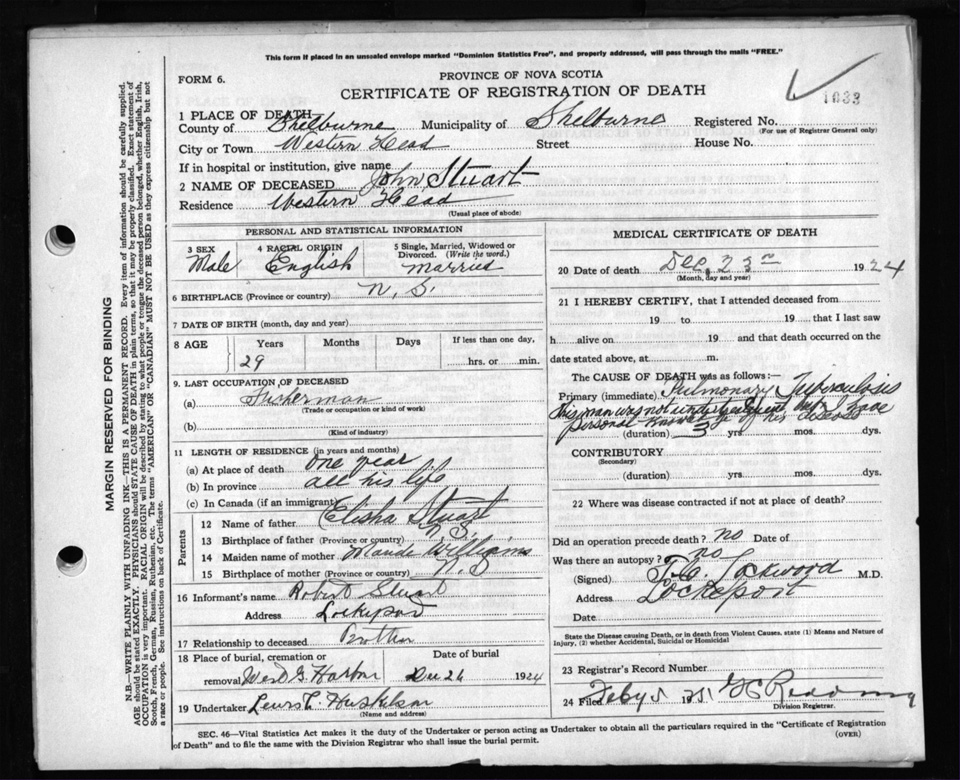 This form if placed in an unsealed envelope marked "Dominion Statistics Free", and properly addressed, will pass through the mails "FREE."
FORM 6.
PROVINCE OF NOVA SCOTIA
CERTIFICATE OF REGISTRATION OF DEATH
1033
1 PLACE OF DEATH
County of Shelburne Municipality of Shelburne Registered No.
(For use of Registrar General only)
City or Town Western Head Street House No.
If in hospital or institution, give name
2 NAME OF DECEASED John Stuart
Residence Western Head
(Usual place of abode)
PERSONAL AND STATISTICAL INFORMATION
3 SEX 4 RACIAL ORIGIN 5 Single, Married, Widowed or Divorced. (Write the word.)
Male English Married
6 BIRTHPLACE (Province or country) N. S.
7 DATE OF BIRTH (month, day and year)
8 AGE Years Months Days If less than one day,
29 hrs. or min.
9. LAST OCCUPATION OF DECEASED
(a) Fisherman
(Trade or occupation or kind of work)
(b)
(Kind of industry)
11 LENGTH OF RESIDENCE (in years and months)
(a) At place of death one year
(b) In province all his life
(c) In Canada (if an immigrant)
Parents
12 Name of father Elisha Stuart
13 Birthplace of father (Province or country) N. S.
14 Maiden name of mother Maude Williams
15 Birthplace of mother (Province or country) N. S
16 Informant's name Robert Stuart
Address Lockeport
17 Relationship to deceased Brother
18 Place of burial, cremation or removal West G. Harbor Date of burial Dec 26 1924
19 Undertaker Lewis L. Huskilson
(Name and address)
MEDICAL CERTIFICATE OF DEATH
20 Date of death Dec, 23rd 1924
(Month, day and year)
21 I HEREBY CERTIFY, that I attended deceased from
19 to 19 that I last saw
h alive on 19 and that death occurred on the
date stated above, at m.
The CAUSE OF DEATH was as follows:—
Primary (immediate) Pulmonary Tuberculosis
This man was not under my care but I have
personal knowledge of his disease
(duration) 3 yrs. mos. dys.
CONTRIBUTORY
(Secondary)
(duration) yrs. mos. dys.
22 Where was disease contracted if not at place of death?
Did an operation precede death? no Date of
Was there an autopsy? no
(Signed) Lockwood M.D.
Address Lockeport
Date
State the Disease causing Death, or in death from Violent Causes, state (1) Means and Nature of Injury, (2) whether Accidental, Suicidal or Homicidal
23 Registrar's Record Number
24 Filed Feby 5
Division Registrar.
SEC. 46—Vital Statistics Act makes it the duty of the Undertaker or person acting as Undertaker to obtain all the particulars required in the "Certificate of Registration
of Death" and to file the same with the Division Registrar who shall issue the burial permit.
(OVER)
MARGIN RESERVED FOR BINDING
N.B.—WRITE PLAINLY WITH UNFADING INK—THIS IS A PERMANENT RECORD. Every item of information should be carefully supplied.
AGE should be stated EXACTLY. PHYSICIANS should STATE CAUSE OF DEATH in plain terms, so that it may be properly classified. Exact statement of
OCCUPATION is very important. RACIAL ORIGIN will be described by stating to what people or tongue the deceased person belonged, whether English, Irish,
Scotch, French, German, Russian, Ruthenian, etc. The terms "AMERICAN" OR "CANADIAN" MUST NOT BE USED as they express citizenship but not
a race or people. See instructions on back of Certificate.